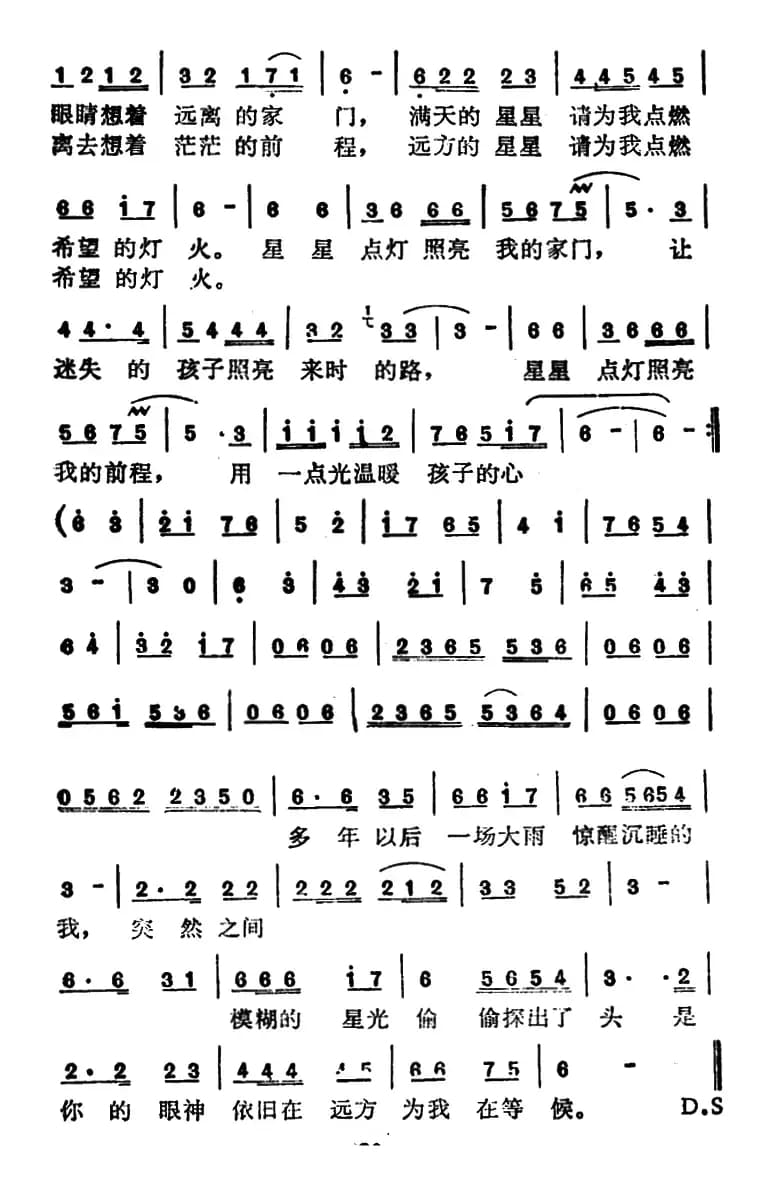 1 2 1 2 | 3 2 1 7 1 | 6 - | 6 2 2 2 3 | 4 4 5 4 5 |
眼睛想着 远离的家 门, 满天的星星 请为我点燃
离去想着 茫茫的前 程, 远方的星星 请为我点燃
6 6 i 7 | 6 - | 6 6 | 3 6 6 6 | 5 6 7 5 | 5 · 3 |
希望的灯 火。 星 星 点灯照亮 我的家门, 让
希望的灯 火。
4 4 · 4 | 5 4 4 4 | 3 2 | 3 3 | 3 - | 6 6 | 3 6 6 6 |
迷失 的 孩子照亮 来时 的路, 星星 点灯照亮
5 6 7 5 | 5 · 3 | i i i i 2 | 7 6 5 i 7 | 6 - | 6 - :||
我的前程, 用 一点光温暖 孩子的心
( 6 3 | 2 i 7 6 | 5 2 | i 7 6 5 | 4 i | 7 6 5 4 |
3 - | 3 0 | 6 3 | 4 3 2 i | 7 5 | 6 5 4 3 |
6 4 | 3 2 i 7 | 0 6 0 6 | 2 3 6 5 5 3 6 | 0 6 0 6 |
5 6 i 5 3 6 | 0 6 0 6 | 2 3 6 5 5 3 6 4 | 0 6 0 6 |
0 5 6 2 2 3 5 0 | 6 · 6 3 5 | 6 6 i 7 | 6 6 5 6 5 4 |
多 年 以后 一场大雨 惊醒沉睡的
3 - | 2 · 2 2 2 | 2 2 2 2 1 2 | 3 3 5 2 | 3 - |
我, 突 然 之间
6 · 6 3 1 | 6 6 6 i 7 | 6 5 6 5 4 | 3 · · 2 |
模糊的 星光 偷 偷探出了 头 是
2 · 2 2 3 | 4 4 4 4 5 | 6 6 7 5 | 6 - ||
你 的 眼神 依旧在 远方 为我 在等 候。 D.S